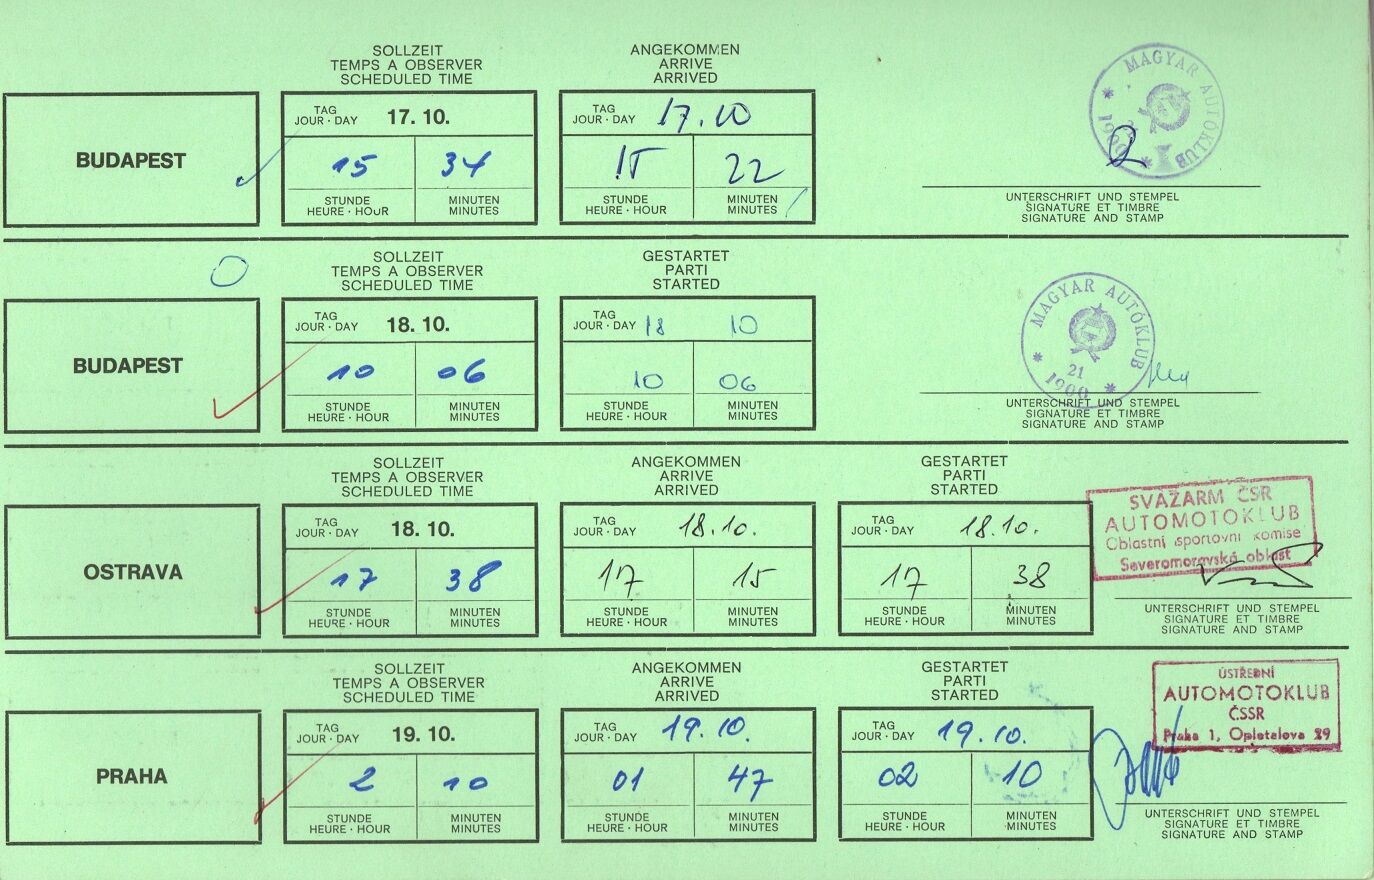 SOLLZEIT
TEMPS A OBSERVER
SCHEDULED TIME
ANGEKOMMEN
ARRIVE
ARRIVED
BUDAPEST
TAG
JOUR · DAY
17. 10.
15 34
STUNDE
HEURE · HOUR
MINUTEN
MINUTES
TAG
JOUR · DAY
17.10
15 22
STUNDE
HEURE · HOUR
MINUTEN
MINUTES
MAGYAR AUTÓKLUB
1900
UNTERSCHRIFT UND STEMPEL
SIGNATURE ET TIMBRE
SIGNATURE AND STAMP
SOLLZEIT
TEMPS A OBSERVER
SCHEDULED TIME
GESTARTET
PARTI
STARTED
BUDAPEST
TAG
JOUR · DAY
18. 10.
10 06
STUNDE
HEURE · HOUR
MINUTEN
MINUTES
TAG
JOUR · DAY
18 10
10 06
STUNDE
HEURE · HOUR
MINUTEN
MINUTES
MAGYAR AUTÓKLUB
21
1900
UNTERSCHRIFT UND STEMPEL
SIGNATURE ET TIMBRE
SIGNATURE AND STAMP
SOLLZEIT
TEMPS A OBSERVER
SCHEDULED TIME
ANGEKOMMEN
ARRIVE
ARRIVED
GESTARTET
PARTI
STARTED
OSTRAVA
TAG
JOUR · DAY
18. 10.
17 38
STUNDE
HEURE · HOUR
MINUTEN
MINUTES
TAG
JOUR · DAY
18.10.
17 15
STUNDE
HEURE · HOUR
MINUTEN
MINUTES
TAG
JOUR · DAY
18.10.
17 38
STUNDE
HEURE · HOUR
MINUTEN
MINUTES
SVAZARM ČSR
AUTOMOTOKLUB
Oblastní sportovní komise
Severomoravská oblast
UNTERSCHRIFT UND STEMPEL
SIGNATURE ET TIMBRE
SIGNATURE AND STAMP
SOLLZEIT
TEMPS A OBSERVER
SCHEDULED TIME
ANGEKOMMEN
ARRIVE
ARRIVED
GESTARTET
PARTI
STARTED
PRAHA
TAG
JOUR · DAY
19. 10.
2 10
STUNDE
HEURE · HOUR
MINUTEN
MINUTES
TAG
JOUR · DAY
19.10.
01 47
STUNDE
HEURE · HOUR
MINUTEN
MINUTES
TAG
JOUR · DAY
19.10.
02 10
STUNDE
HEURE · HOUR
MINUTEN
MINUTES
ÚSTŘEDNÍ
AUTOMOTOKLUB
ČSSR
Praha 1, Opletalova 29
UNTERSCHRIFT UND STEMPEL
SIGNATURE ET TIMBRE
SIGNATURE AND STAMP